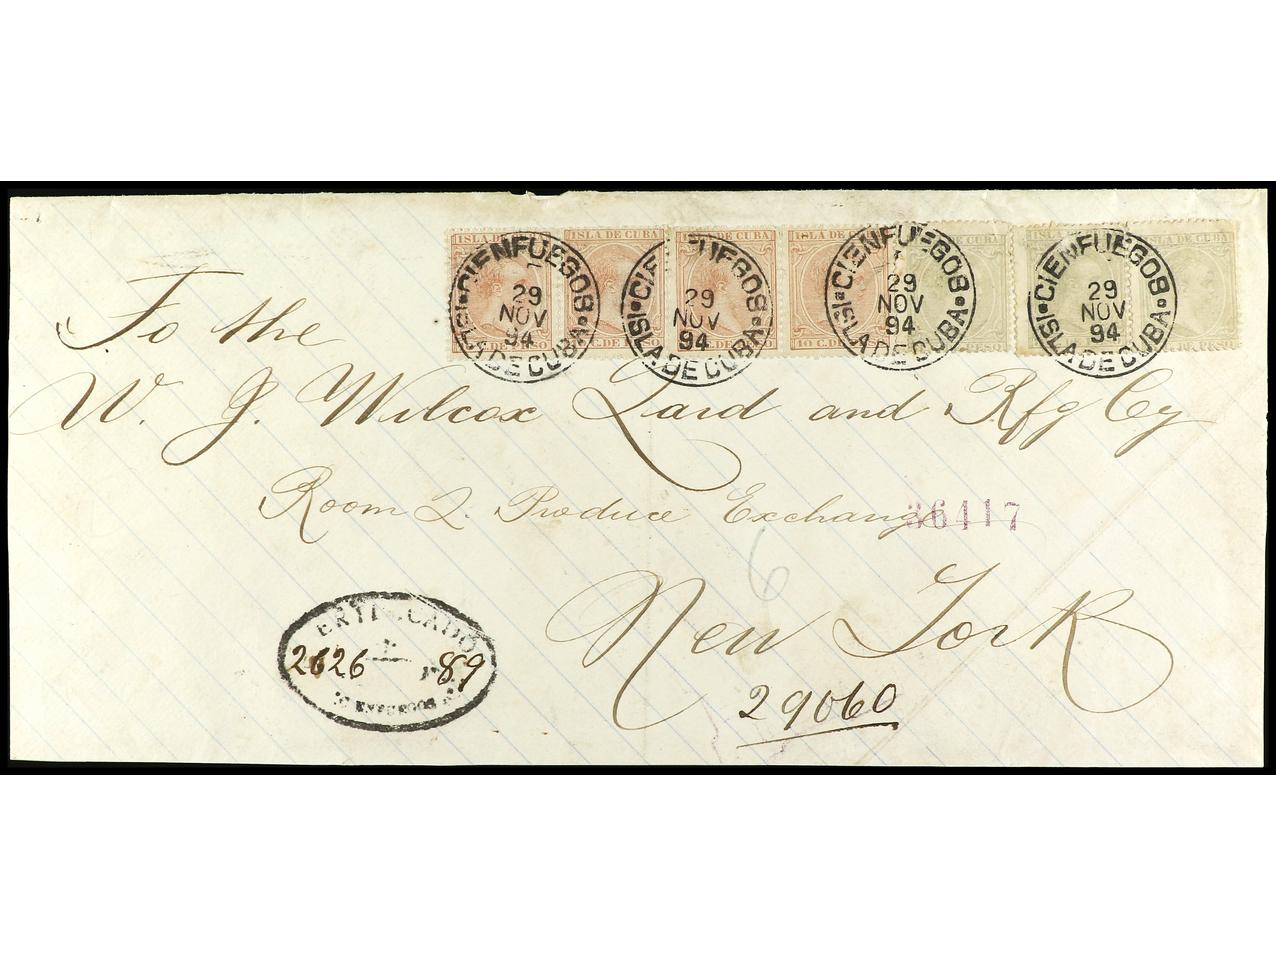 ISLA DE CUBA
CIENFUEGOS
29
NOV
94
ISLA DE CUBA
CIENFUEGOS
29
NOV
94
ISLA DE CUBA
CIENFUEGOS
29
NOV
94
ISLA DE CUBA
CIENFUEGOS
29
NOV
94
ISLA DE CUBA
10 C. DE PESO
To the
W. J. Wilcox Lard and Rfg Cy
Room 2 Produce Exchange
36417
6
New York
29060
CERTIFICADO
2626 89
CIENFUEGOS